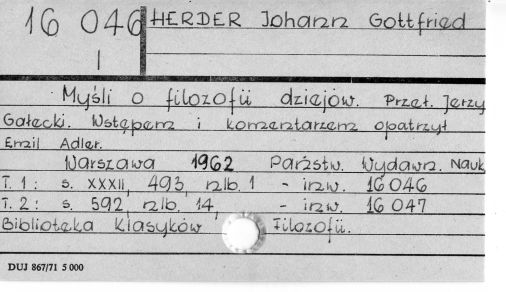 16 046 HERDER Johann Gottfried
I
Myśli o filozofii dziejów. Przeł. Jerzy
Gałecki. Wstępem i komentarzem opatrzył
Emil Adler.
Warszawa 1962 Państw. Wydawn. Nauk
T. 1: s. XXXII, 493, nlb. 1 - inw. 16 046
T. 2: s. 592, nlb. 14, - inw. 16 047
Biblioteka Klasyków Filozofii.
DUJ 867/71 5 000